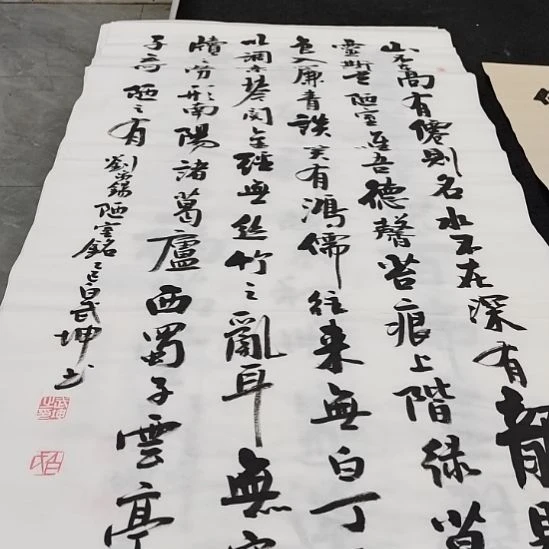 山不在高有僊則名水不在深有龍
靈斯是陋室唯吾德馨苔痕上階緑草
色入簾青談笑有鴻儒往来無白丁
以調素琴閲金經無絲竹之亂耳無
牘勞形南陽諸葛廬西蜀子雲亭
子云何陋之有
劉禹錫陋室銘乙巳白武坤书